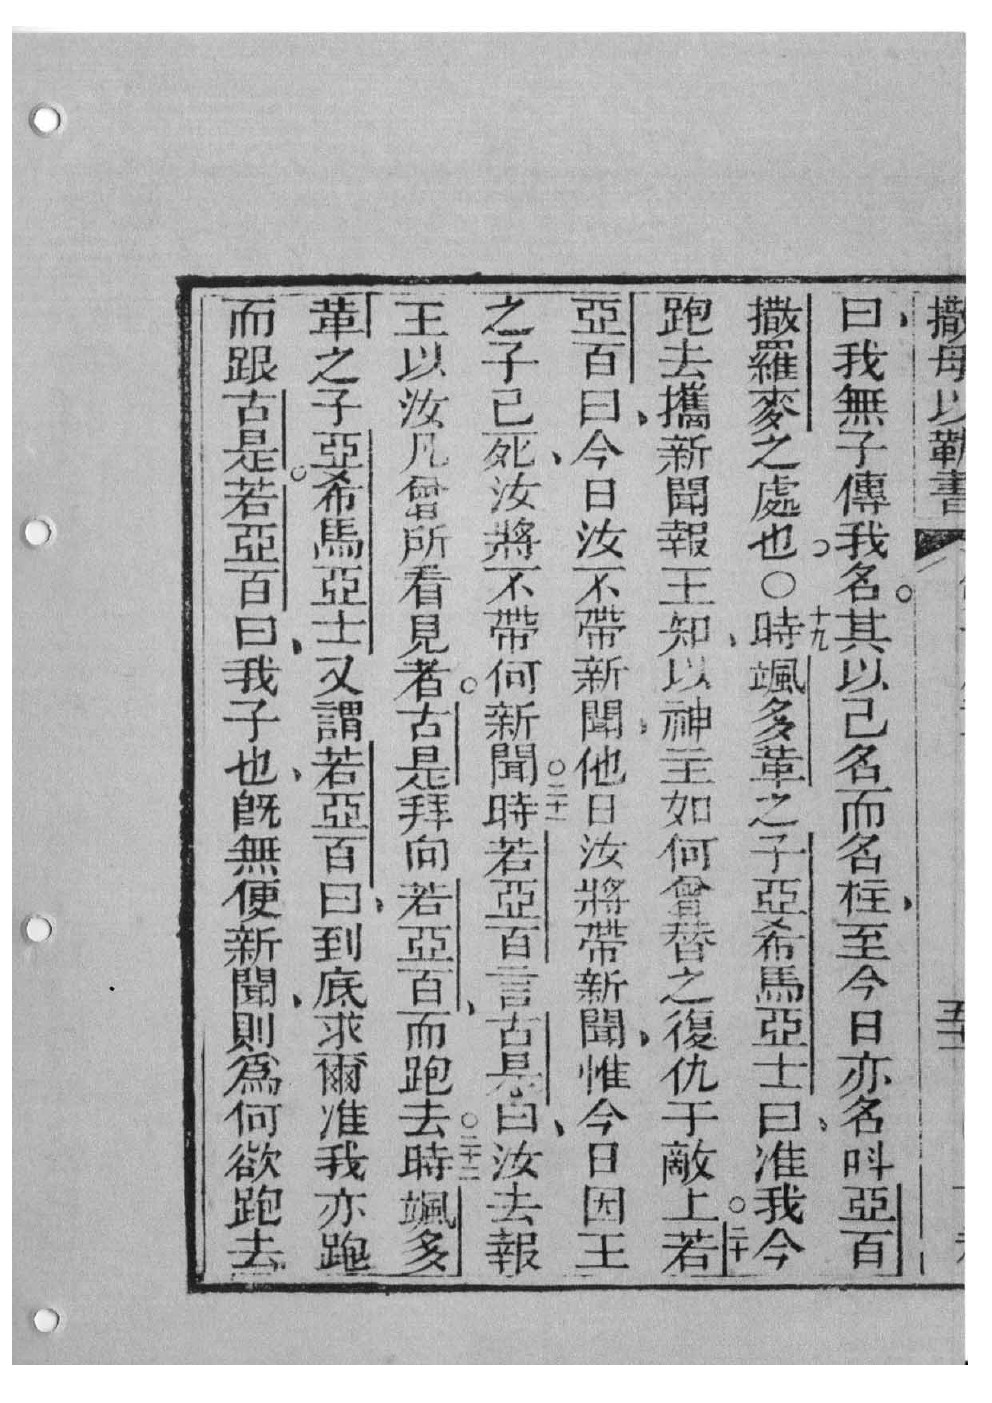 撒母以勒書
曰、我無子傳我名。其以己名而名柱、至今日亦名呌亞百
撒羅麥之處也。○十九時颯多革之子亞希馬亞士曰、准我今
跑去攜新聞報王知、以神主如何曾替之復仇于敵上。○二十若
亞百曰、今日汝不帶新聞、他日汝將帶新聞、惟今日因王
之子已死、汝將不帶何新聞○二十一時若亞百言古是曰、汝去報
王以汝凡曾所看見者。古是拜向若亞百、而跑去○二十二時颯多
革之子亞希馬亞士又謂若亞百曰、到底求爾准我亦跑
而跟古是。若亞百曰、我子也、旣無便新聞、則爲何欲跑去